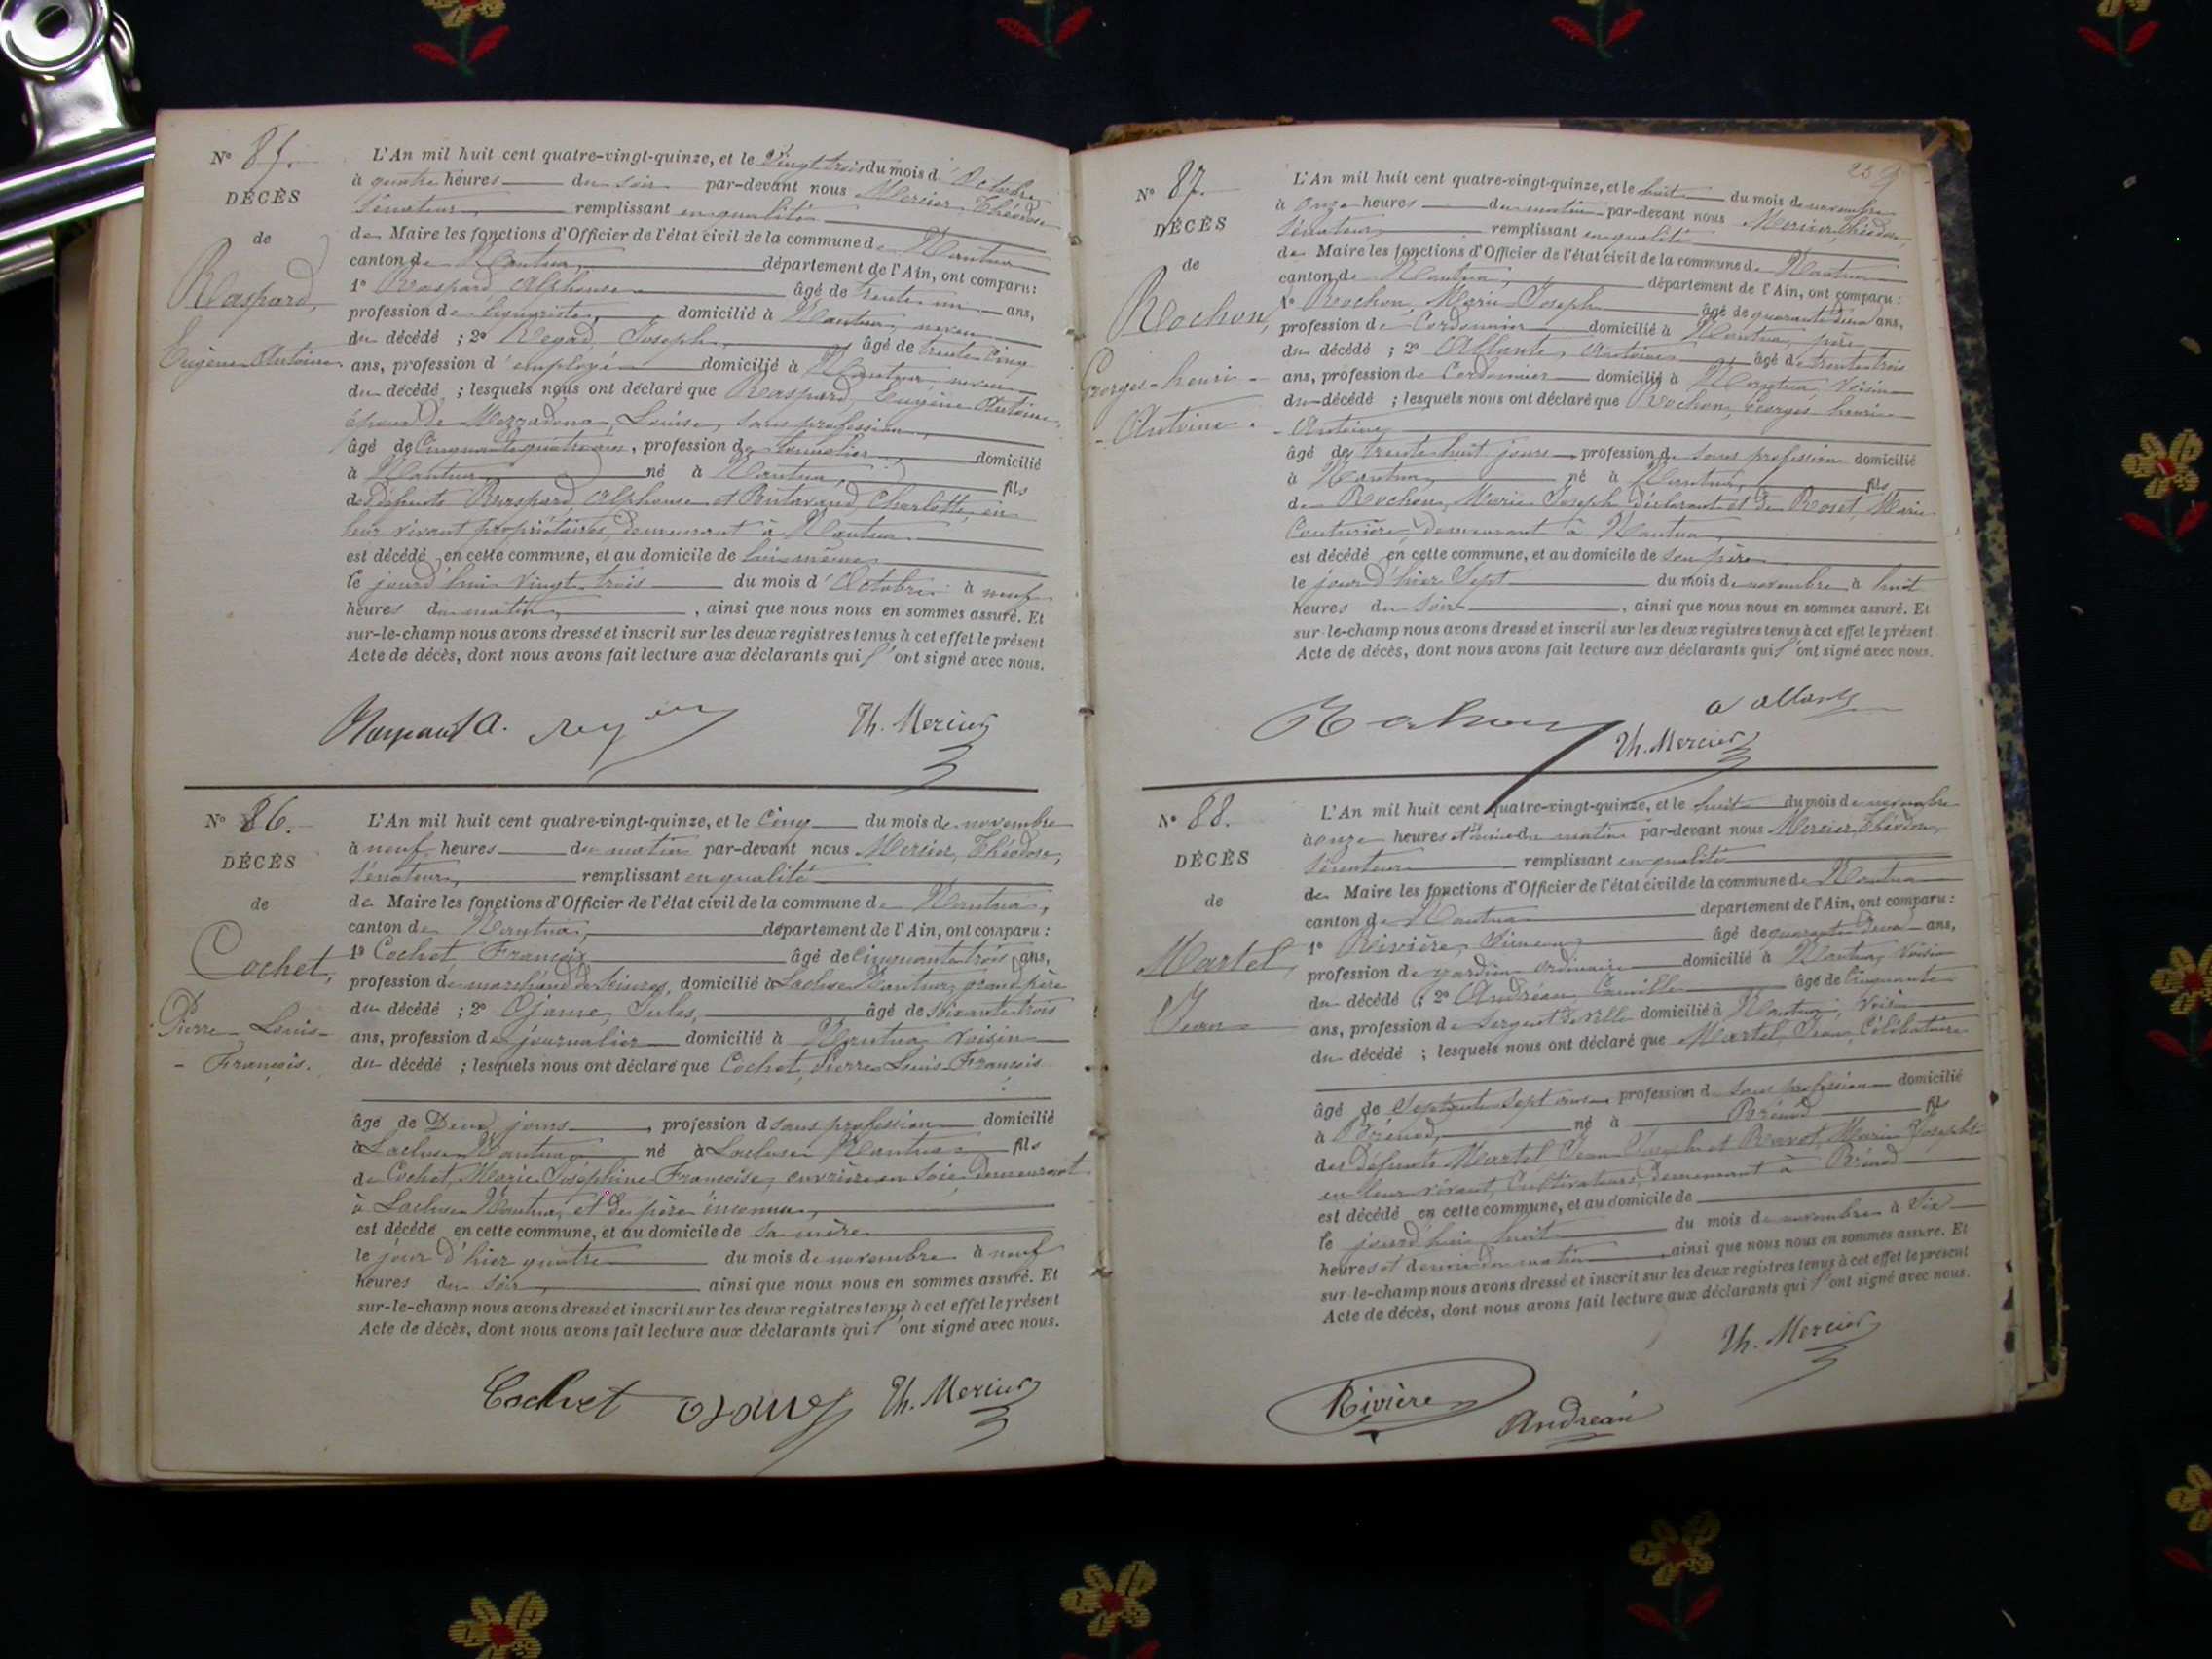 N° 85.
DÉCÈS
de
Raspard,
Eugène Antoine.
L'An mil huit cent quatre-vingt-quinze, et le Vingt trois du mois d'Octobre
à quatre heures du soir par-devant nous Mercier, Théodose
Sénateur, remplissant en qualité
de Maire les fonctions d'Officier de l'état civil de la commune de Nantua
canton de Nantua, département de l'Ain, ont comparu:
1° Raspard, Alphonse âgé de trente un ans,
profession de liquoriste, domicilié à Nantua, neveu
du décédé ; 2° Joseph, âgé de trente cinq
ans, profession d'employé domicilié à Nantua, neveu
du décédé ; lesquels nous ont déclaré que Raspard, Eugène Antoine
époux de Louise, sans profession,
âgé de Cinquante quatre ans, profession de domicilié
à Nantua né à Nantua, fils
de défunts Raspard, Alphonse et Charlotte, en
leur vivant propriétaires, demeurant à Nantua
est décédé en cette commune, et au domicile de lui-même
le jourd'hui vingt trois du mois d'Octobre à neuf
heures du matin, ainsi que nous nous en sommes assuré. Et
sur-le-champ nous avons dressé et inscrit sur les deux registres tenus à cet effet le présent
Acte de décès, dont nous avons fait lecture aux déclarants qui l'ont signé avec nous.
Th. Mercier
N° 86.
DÉCÈS
de
Cochet,
Pierre-Louis-
- François.
L'An mil huit cent quatre-vingt-quinze, et le Cinq du mois de novembre
à neuf heures du matin par-devant nous Mercier, Théodose,
Sénateur, remplissant en qualité
de Maire les fonctions d'Officier de l'état civil de la commune de Nantua,
canton de Nantua, département de l'Ain, ont comparu :
1° Cochet, François âgé de Cinquante trois ans,
profession de marchand de domicilié à Lacluse Nantua, grand père
du décédé ; 2° Ojame, Jules, âgé de soixante trois
ans, profession de journalier domicilié à Nantua, voisin
du décédé ; lesquels nous ont déclaré que Cochet, Pierre Louis François
âgé de Deux jours, profession d sans profession domicilié
à Lacluse Nantua né à Lacluse Nantua fils
de Cochet, Marie Joséphine Françoise, ouvrière en soie, demeurant
à Lacluse Nantua, et de père inconnu,
est décédé en cette commune, et au domicile de sa mère
le jour d'hier quatre du mois de novembre à neuf
heures du soir, ainsi que nous nous en sommes assuré. Et
sur-le-champ nous avons dressé et inscrit sur les deux registres tenus à cet effet le présent
Acte de décès, dont nous avons fait lecture aux déclarants qui l'ont signé avec nous.
Cochet Th. Mercier
N° 87.
DÉCÈS
de
Rochon,
Georges-henri-
- Antoine.
L'An mil huit cent quatre-vingt-quinze, et le huit du mois de novembre
à onze heures du matin par-devant nous Mercier, Théodose,
Sénateur, remplissant en qualité
de Maire les fonctions d'Officier de l'état civil de la commune de Nantua
canton de Nantua, département de l'Ain, ont comparu :
1° Rochon, Marie Joseph âgé de quarante deux ans,
profession de Cordonnier domicilié à Nantua, père
du décédé ; 2° Allante, Antoine âgé de trente trois
ans, profession de Cordonnier domicilié à Nantua, voisin
du décédé ; lesquels nous ont déclaré que Rochon, Georges henri
- Antoine
âgé de trente huit jours, profession d sans profession domicilié
à Nantua, né à Nantua, fils
de Rochon, Marie Joseph, déclarant et de Roset, Marie
Couturière, demeurant à Nantua,
est décédé en cette commune, et au domicile de son père
le jour d'hier Sept du mois de novembre à huit
heures du soir, ainsi que nous nous en sommes assuré. Et
sur-le-champ nous avons dressé et inscrit sur les deux registres tenus à cet effet le présent
Acte de décès, dont nous avons fait lecture aux déclarants qui l'ont signé avec nous.
Th. Mercier
N° 88.
DÉCÈS
de
Martel,
Jean
L'An mil huit cent quatre-vingt-quinze, et le huit du mois de novembre
à onze heures et demie du matin par-devant nous Mercier, Théodose,
Sénateur remplissant en qualité
de Maire les fonctions d'Officier de l'état civil de la commune de Nantua
canton de Nantua département de l'Ain, ont comparu :
1° Rivière, Siméon âgé de quarante deux ans,
profession de gardien ordinaire domicilié à Nantua, voisin
du décédé ; 2° Andréan, Camille âgé de Cinquante
ans, profession de Sergent de Ville domicilié à Nantua, voisin
du décédé ; lesquels nous ont déclaré que Martel, Jean, Célibataire
âgé de Septante Sept ans, profession d sans profession domicilié
à Brénod, né à Brénod fils
des défunts Martel, Jean et Ravet, Marie Josephte
en leur vivant, Cultivateurs, demeurant à Brénod
est décédé en cette commune, et au domicile de
le jourd'hui huit du mois de novembre à Six
heures et demie du matin ainsi que nous nous en sommes assuré. Et
sur-le-champ nous avons dressé et inscrit sur les deux registres tenus à cet effet le présent
Acte de décès, dont nous avons fait lecture aux déclarants qui l'ont signé avec nous.
Th. Mercier
Rivière Andréan